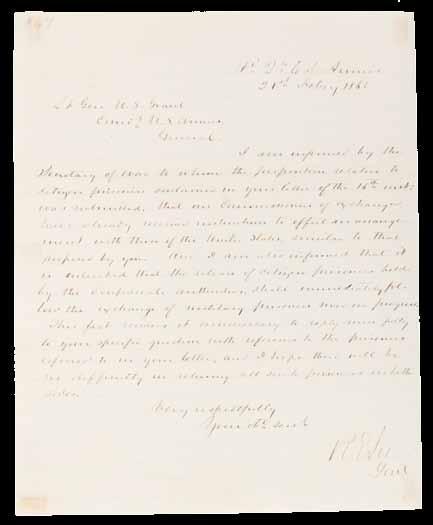 Hd Qrs C S Armies
21st Feby 1865
Lt Gen U. S. Grant
Comdg U S Armies
General
I am informed by the
Secretary of War to whom the proposition relative to
citizen prisoners contained in your letter of the 16th inst;
was submitted, that our Commissioner of exchange
have already received instructions to effect an arrange
ment with those of the United States, similar to that
proposed by you. And I am also informed that it
is intended that the release of citizen prisoners held
by the Confederate authorities, should immediately fol-
low the exchange of military prisoners now in progress
This fact renders it unnecessary to reply more fully
to your specific question with reference to the prisoners
referred to in your letter, and I hope there will be
no difficulty in releasing all such prisoners on both
sides.
Very respectfully
Your obt servt
R E Lee
Genl